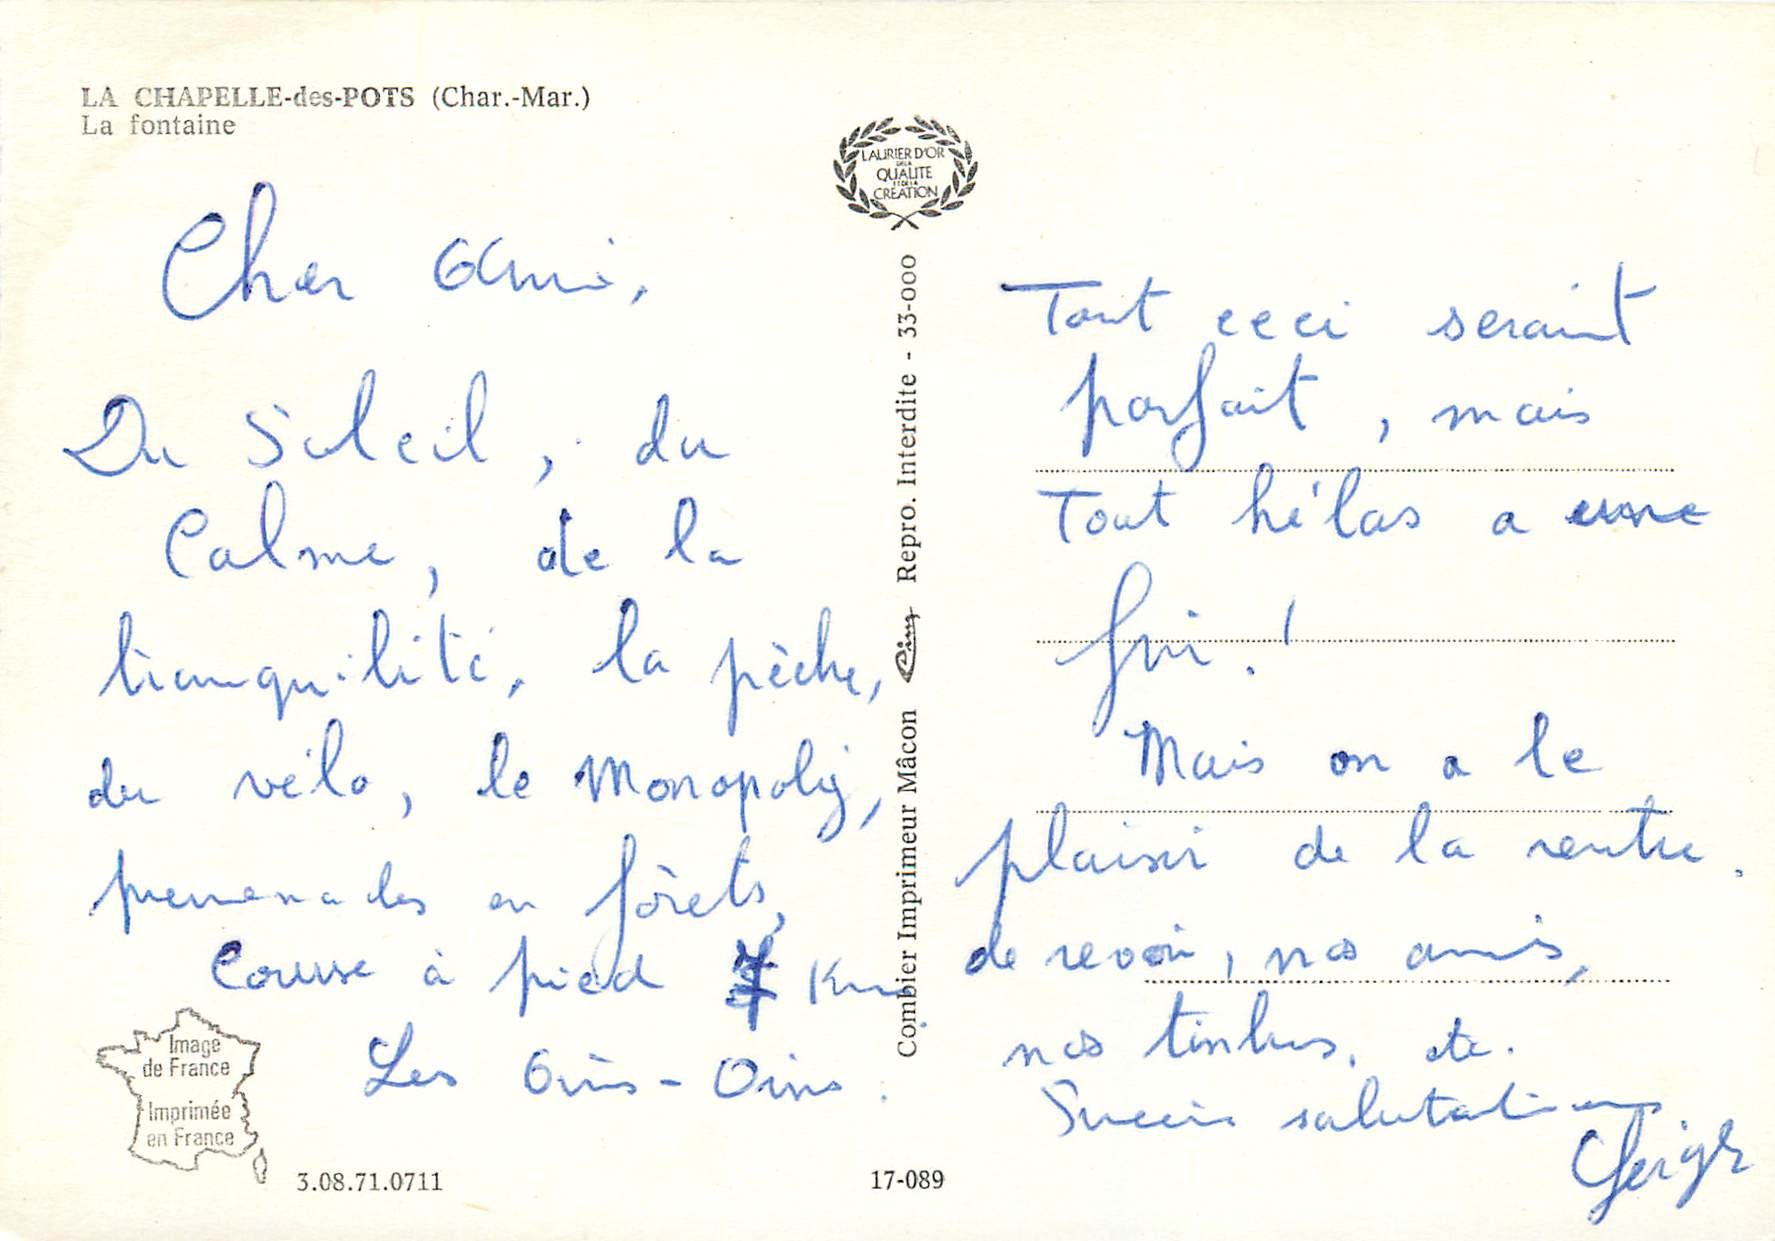 LA CHAPELLE-des-POTS (Char.-Mar.)
La fontaine
Cher Ami,
Du Soleil, du
Calme, de la
tranquilité, la pèche,
du vélo, le Monopoly,
promenades en fôrets,
Course à pied 7 Kms
Les Oins-Oins.
Image
de France
Imprimée
en France
3.08.71.0711
17-089
LAURIER D'OR
DE LA
QUALITE
ET DE LA
CREATION
Combier Imprimeur Mâcon Cim Repro. Interdite - 33-000
Tout ceci serait
parfait, mais
Tout hélas a une
fin.!
Mais on a le
plaisir de la rentrée.
de revoir, nos amis,
nos timbres, etc.
Sincères salutations